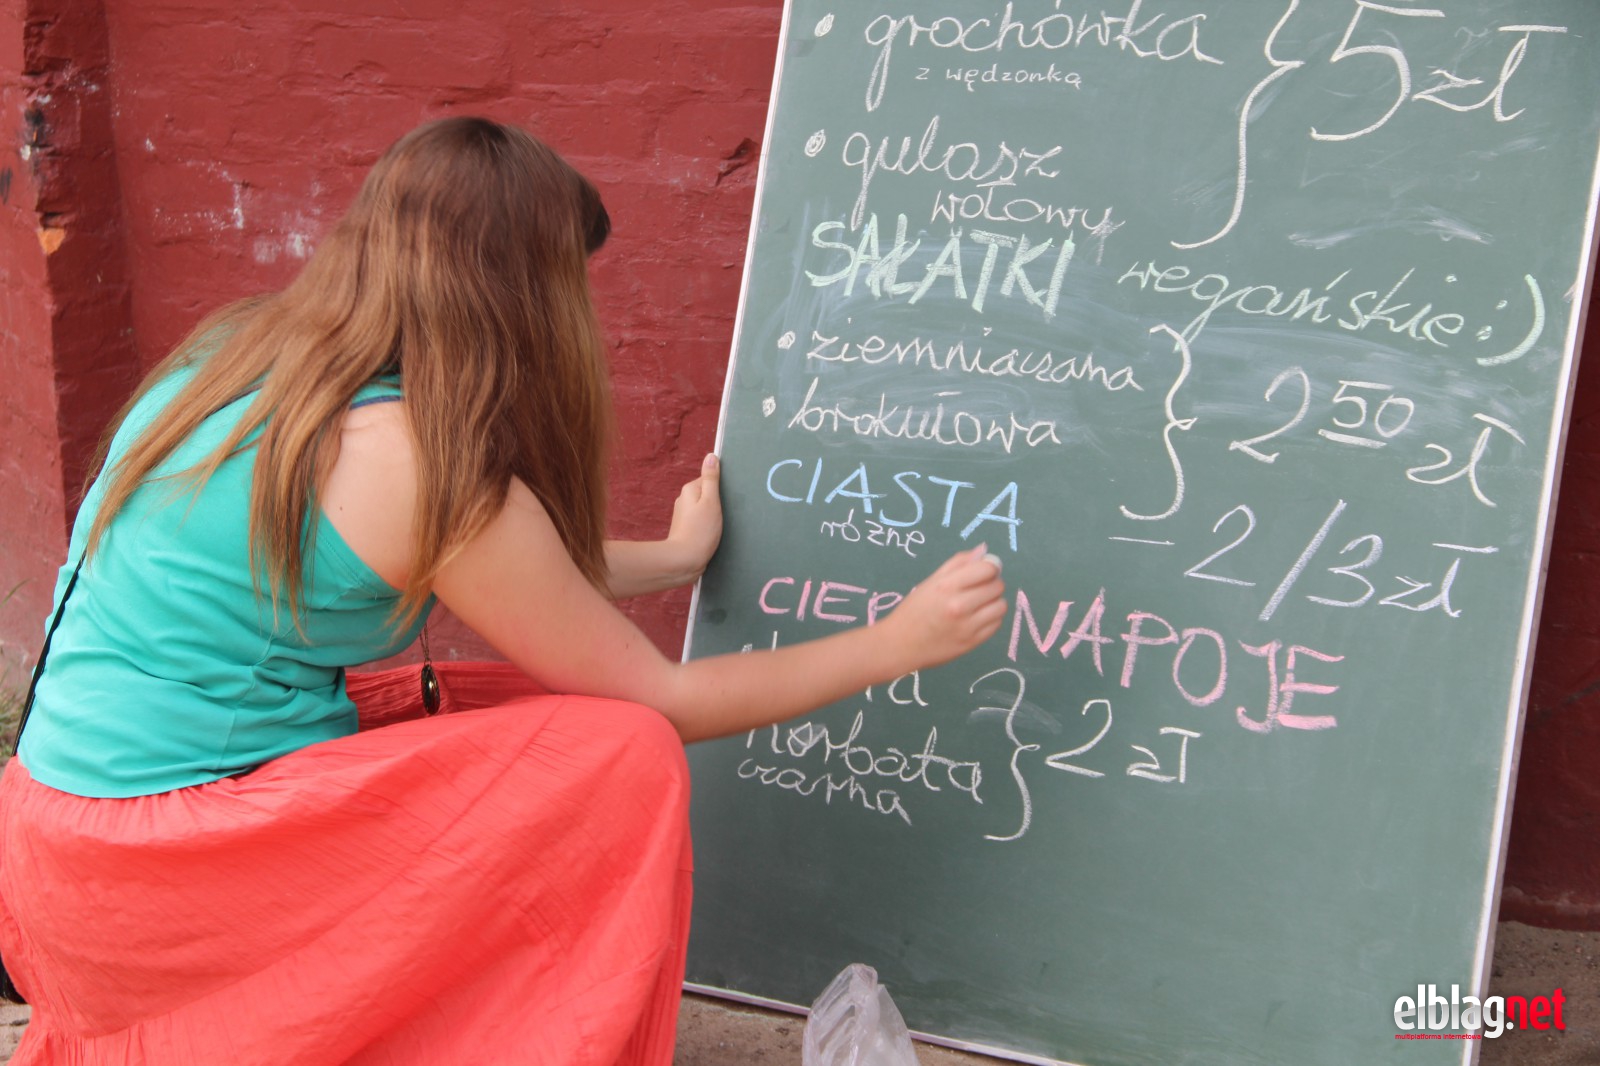 • grochówka } 5 zł
z wędzonką
• gulasz
wołowy
SAŁATKI wegańskie :)
• ziemniaczana
• brokułowa } 2 50 zł
CIASTA – 2/3 zł
różne
NAPOJE
herbata } 2 zł
czarna
elblag.net
multiplatforma internetowa